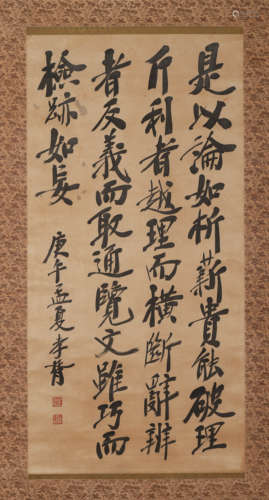 是以論如析薪貴能破理
斤利者越理而橫斷辭辨
者反義而取通覽文雖巧而
檢跡如妄
庚午孟夏孝胥